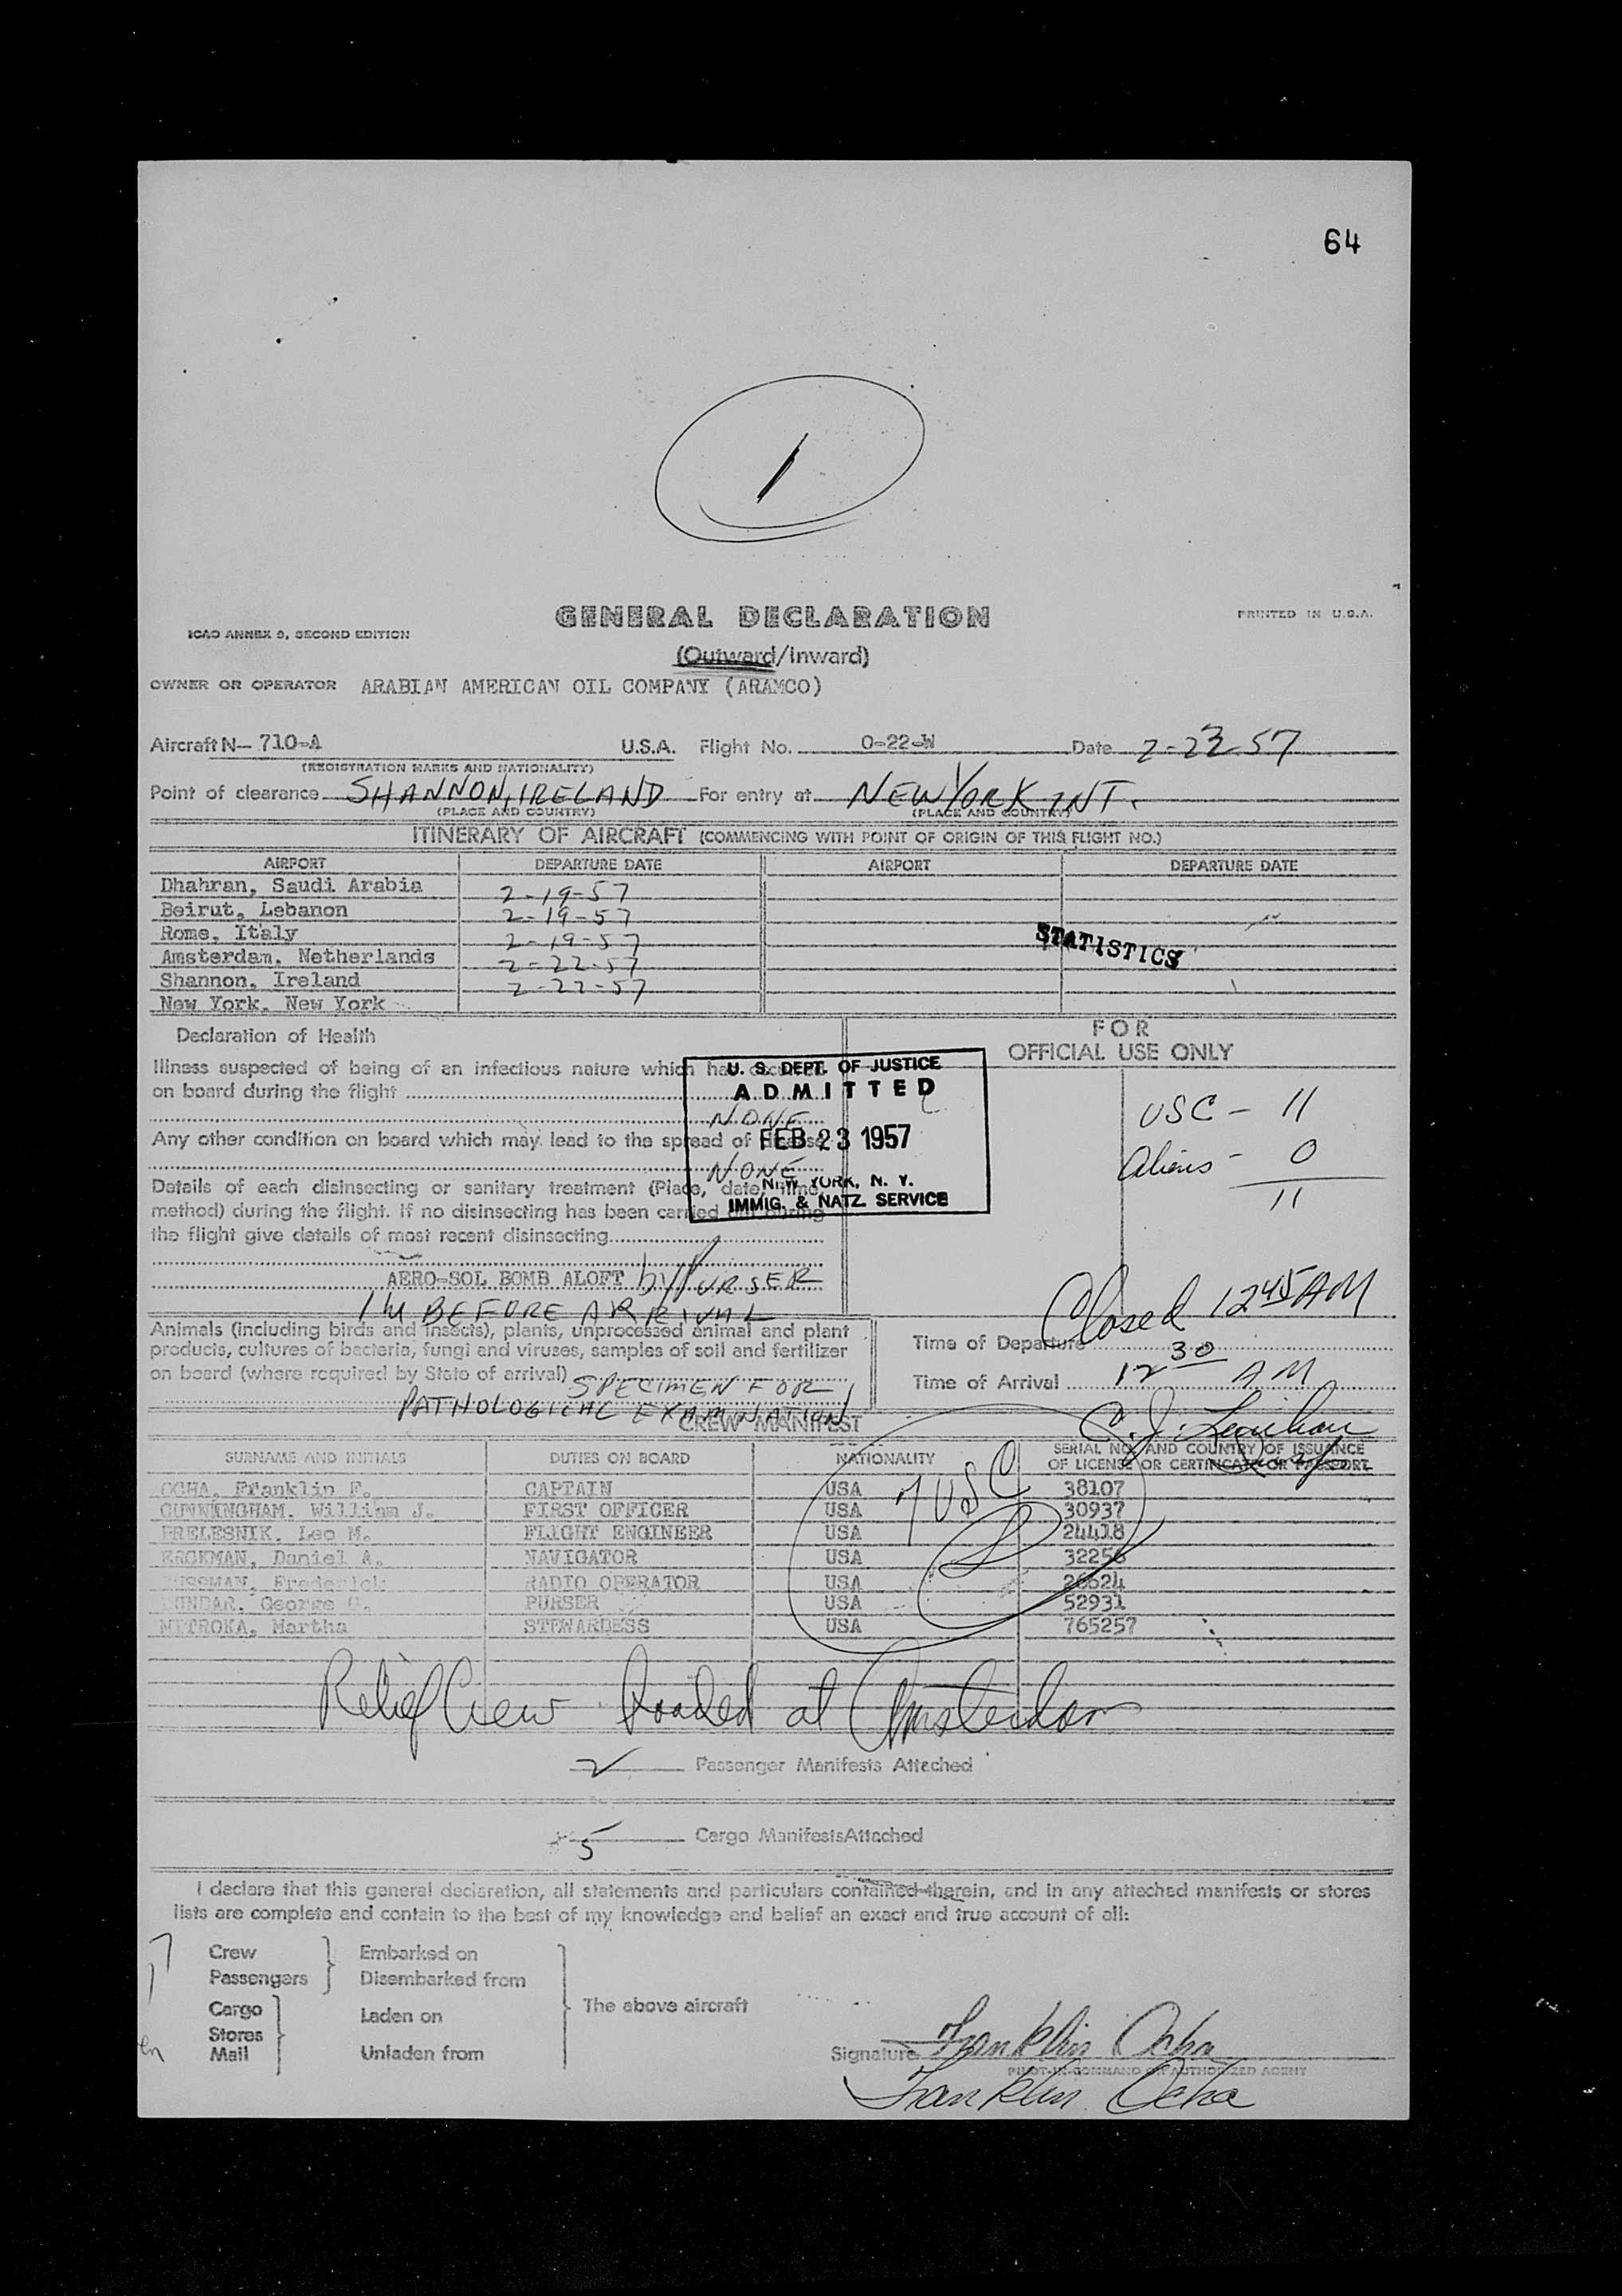 64
1
GENERAL DECLARATION
PRINTED IN U.S.A.
ICAO ANNEX 9, SECOND EDITION
(Outward/Inward)
OWNER OR OPERATOR ARABIAN AMERICAN OIL COMPANY (ARAMCO)
Aircraft N- 710-A U.S.A. Flight No. O-22-W Date 2-23-57
(REGISTRATION MARKS AND NATIONALITY)
Point of clearance SHANNON, IRELAND For entry at NEW YORK INT.
(PLACE AND COUNTRY) (PLACE AND COUNTRY)
ITINERARY OF AIRCRAFT (COMMENCING WITH POINT OF ORIGIN OF THIS FLIGHT NO.)
AIRPORT DEPARTURE DATE AIRPORT DEPARTURE DATE
Dhahran, Saudi Arabia 2-19-57
Beirut, Lebanon 2-19-57
Rome, Italy 2-19-57
STATISTICS
Amsterdam, Netherlands 2-22-57
Shannon, Ireland 2-22-57
New York, New York
Declaration of Health
FOR
OFFICIAL USE ONLY
Illness suspected of being of an infectious nature which has
on board during the flight
NONE
Any other condition on board which may lead to the spread of disease
NONE
Details of each disinsecting or sanitary treatment (Place, date, time,
method) during the flight. If no disinsecting has been carried out during
the flight give details of most recent disinsecting
AERO-SOL BOMB ALOFT by PURSER
1 H BEFORE ARRIVAL
U. S. DEPT. OF JUSTICE
ADMITTED
FEB 23 1957
NEW YORK, N. Y.
IMMIG. & NATZ. SERVICE
USC - 11
Aliens - 0
11
Closed 12 45 AM
Animals (including birds and insects), plants, unprocessed animal and plant
products, cultures of bacteria, fungi and viruses, samples of soil and fertilizer
on board (where required by State of arrival) SPECIMEN FOR
PATHOLOGICAL EXAMINATION
Time of Departure
Time of Arrival 12 30 AM
CREW MANIFEST
SURNAME AND INITIALS DUTIES ON BOARD NATIONALITY SERIAL NO. AND COUNTRY OF ISSUANCE
OF LICENSE OR CERTIFICATE OR PASSPORT
7 USC
OCHA, Franklin F. CAPTAIN USA 38107
CUNNINGHAM, William J. FIRST OFFICER USA 30937
PRELESNIK, Leo M. FLIGHT ENGINEER USA 24418
Daniel A. NAVIGATOR USA 32256
Frederick RADIO OPERATOR USA
George PURSER USA 52931
MITROKA, Martha STEWARDESS USA 765257
Relief Crew Loaded at Amsterdam
2 Passenger Manifests Attached
5 Cargo Manifests Attached
I declare that this general declaration, all statements and particulars contained therein, and in any attached manifests or stores
lists are complete and contain to the best of my knowledge and belief an exact and true account of all:
7 Crew Embarked on
Passengers Disembarked from
Cargo Laden on
Stores
Mail Unladen from
The above aircraft
Signature Franklin Ocha
PILOT-IN-COMMAND OR AUTHORIZED AGENT
Franklin Ocha